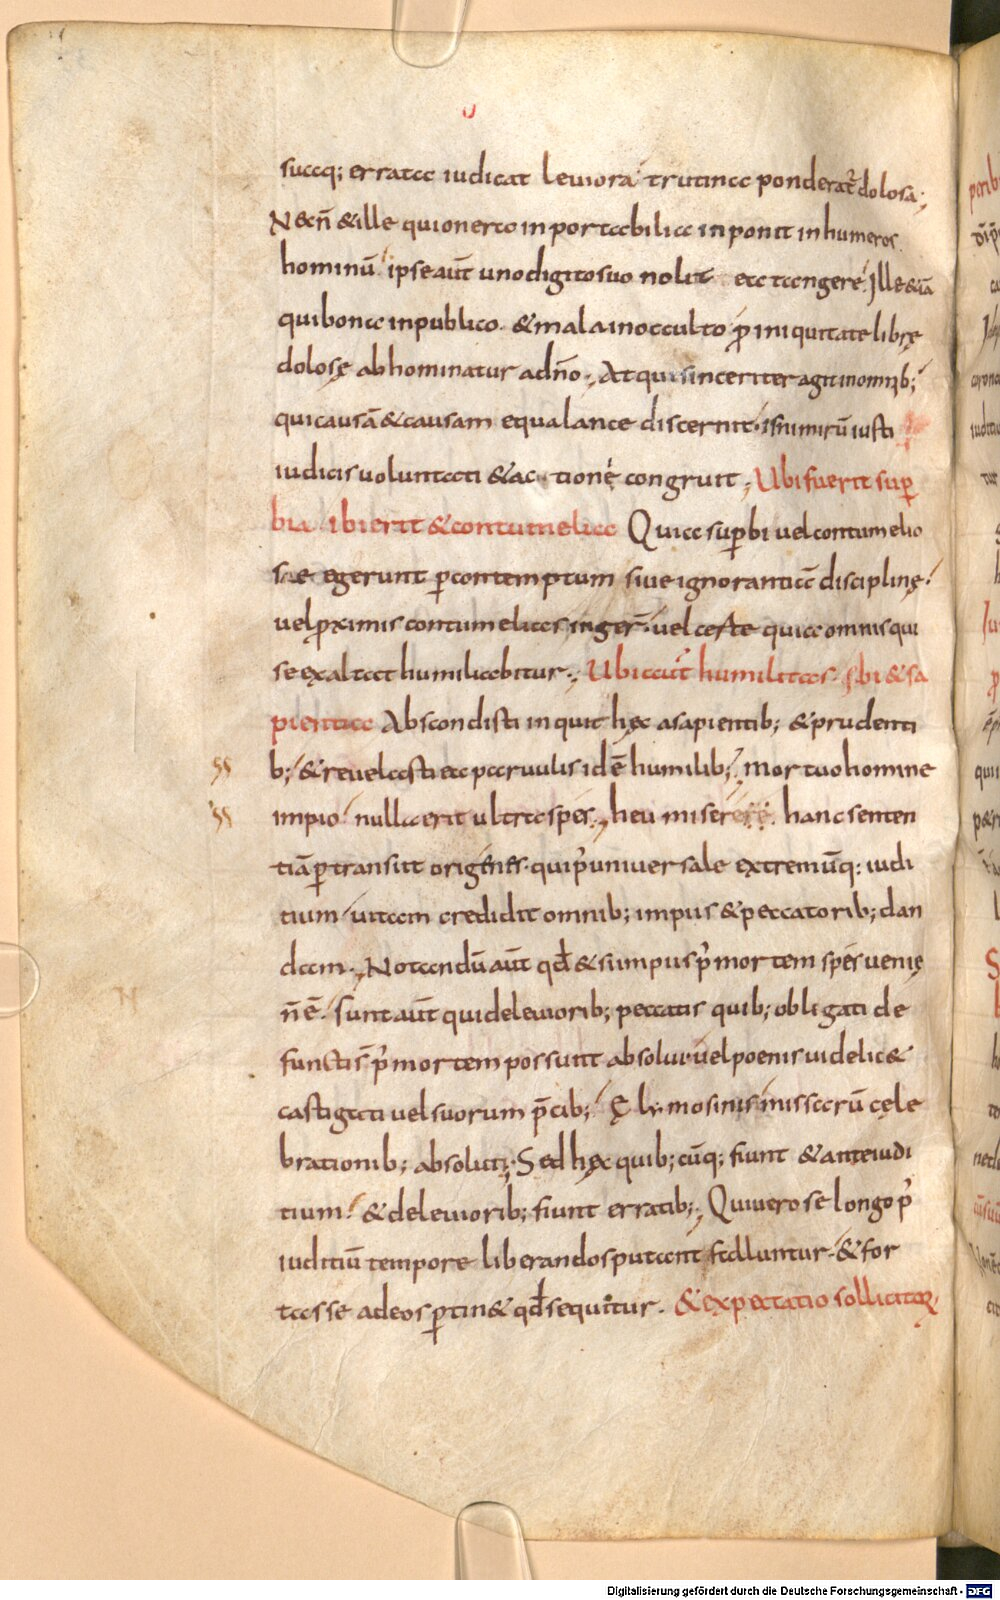 u
suaq; errata iudicat leuiora trutina ponderat̄ dolosa;
Necn̄ &ille qui onera inportabilia inponit in humeros
hominū ipse aūt uno digito suo nolit ea tangere. Ille &iā
qui bona in publico &mala in occulto p̄ iniquitate librę
dolosę abhominatur ad dn̄o; At qui sinceriter agit in omnib;
qui causā &causam equa lance discernit. is nimirū iusti
iudicis uoluntati &actione congruit; Ubi fuerit sup̱
bia ibi erit &contumelia Quia sup̱bi uel contumelio
se egerunt p̱ contemptum siue ignorantiā disciplinę.
uel p̱ximis contumelias inger̄. uel certe quia omnis qui
se exaltat humiliabitur; Ubi aūt humilitas Ibi &sa
pientia Abscondisti inquit hęc a sapientib; &prudenti
b; &reuelasti ea paruulis id ē humilib; Mortuo homine
impio nulla erit ultra spes; heu miser hanc senten
tiā p̱transiit origenes. qui p̄ uniuersale extremūq: iudi
tium uitam credidit omnib; impiis &peccatorib; dan
dam; Notandū aūt qđ &si impiis p̄ mortem spes uenię
n̄ ē. sunt aūt qui de leuiorib; peccatis quib; obligati de
functi s̄ p̄ mortem possunt absolui uel poenis uidelic&
castigati uel suorum p̄cib; Ęlymosinis missarū cęle
brationib; absoluti; Sed hęc quib; cūq; fiunt &ante iudi
tium. &de leuiorib; fiunt erratib; Qui uero se longo p̄
iuditiū tempore liberandos putant falluntur. &for
tasse ad eos p̱tin& qđ sequitur. &expectatio sollicitoꝝ
ss
ss
N
Digitalisierung gefördert durch die Deutsche Forschungsgemeinschaft - DFG